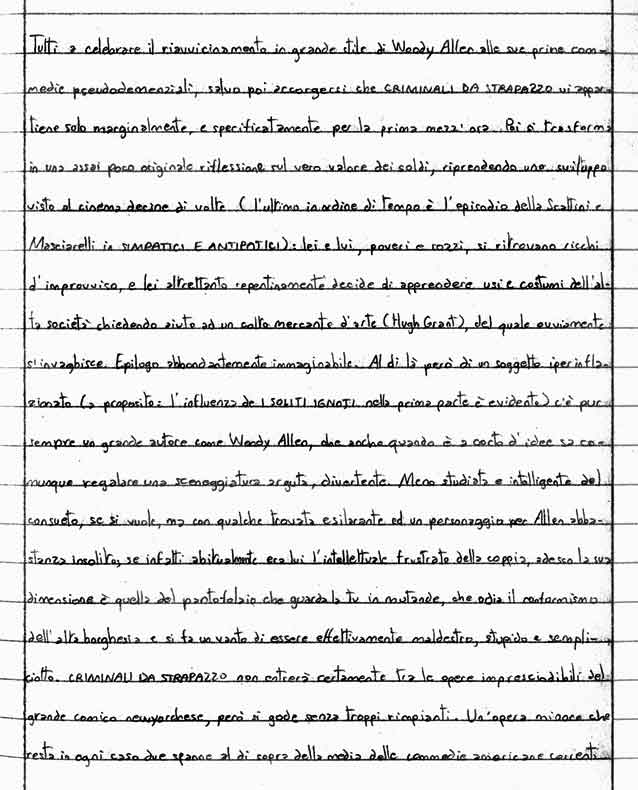 Tutti a celebrare il riavvicinamento in grande stile di Woody Allen alle sue prime com-
medie pseudodemenziali, salvo poi accorgersi che CRIMINALI DA STRAPAZZO vi appar-
tiene solo marginalmente, e specificatamente per la prima mezz'ora. Poi si trasforma
in una assai poco originale riflessione sul vero valore dei soldi, riprendendo uno sviluppo
visto al cinema decine di volte (l'ultimo in ordine di tempo è l'episodio della Scattini e
Masciarelli in SIMPATICI E ANTIPATICI): lei e lui, poveri e rozzi, si ritrovano ricchi
d'improvviso, e lei altrettanto repentinamente decide di apprendere usi e costumi dell'al-
ta società chiedendo aiuto ad un colto mercante d'arte (Hugh Grant), del quale ovviamente
s'invaghisce. Epilogo abbondantemente immaginabile. Al di là però di un soggetto iperinfla-
zionato (a proposito: l'influenza de I SOLITI IGNOTI nella prima parte è evidente) c'è pur
sempre un grande autore come Woody Allen, che anche quando è a corto d'idee sa co-
munque regalare una sceneggiatura arguta, divertente. Meno studiata e intelligente del
consueto, se si vuole, ma con qualche trovata esilarante ed un personaggio per Allen abba-
stanza insolito; se infatti abitualmente era lui l'intellettuale frustrato della coppia, adesso la sua
dimensione è quella del pantofolaio che guarda la tv in mutande, che odia il conformismo
dell'alta borghesia e si fa un vanto di essere effettivamente maldestro, stupido e sempli-
ciotto. CRIMINALI DA STRAPAZZO non entrerà certamente tra le opere imprescindibili del
grande comico newyorchese, però si gode senza troppi rimpianti. Un'opera minore che
resta in ogni caso due spanne al di sopra della media delle commedie americane correnti.